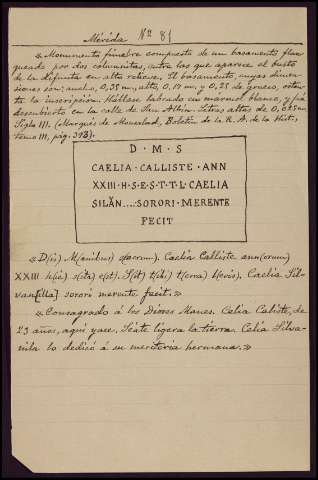 Mérida Nº 81
« Monumento fúnebre compuesto de un basamento flan
queado por dos columnitas, entre las que aparece el busto
de la difunta en alto relieve. El basamento, cuyas dimen
siones son: ancho, 0,38 m., alto, 0,17 m. y 0,28 de grueso, osten
ta la inscripción. Hállase labrado en mármol blanco, y fué
descubierto en la calle de San Albín. Letras altas de
Siglo III. (Marqués de Monsalud, Boletín de la R. A. de la Hist.,
tomo III, pág. 393).
D · M · S
CAELIA · CALLISTE · ANN
XXIII · H · S · E · S · T · T · L · CAELIA
SILĀN.... · SORORI · MERENTE
FECIT
« D(is) M(anibus) s(acrum). Caelia Calliste ann(orum)
XXIII h(ic) s(ita) e(st). S(it) t(ibi) t(erra) l(evis), Caelia Sil-
van[illa] sorori merente fecit. »
« Consagrado á los Dioses Manes. Celia Caliste, de
23 años, aquí yace. Séate ligera la tierra. Celia Silva-
nila lo dedicó á su meritoria hermana. »